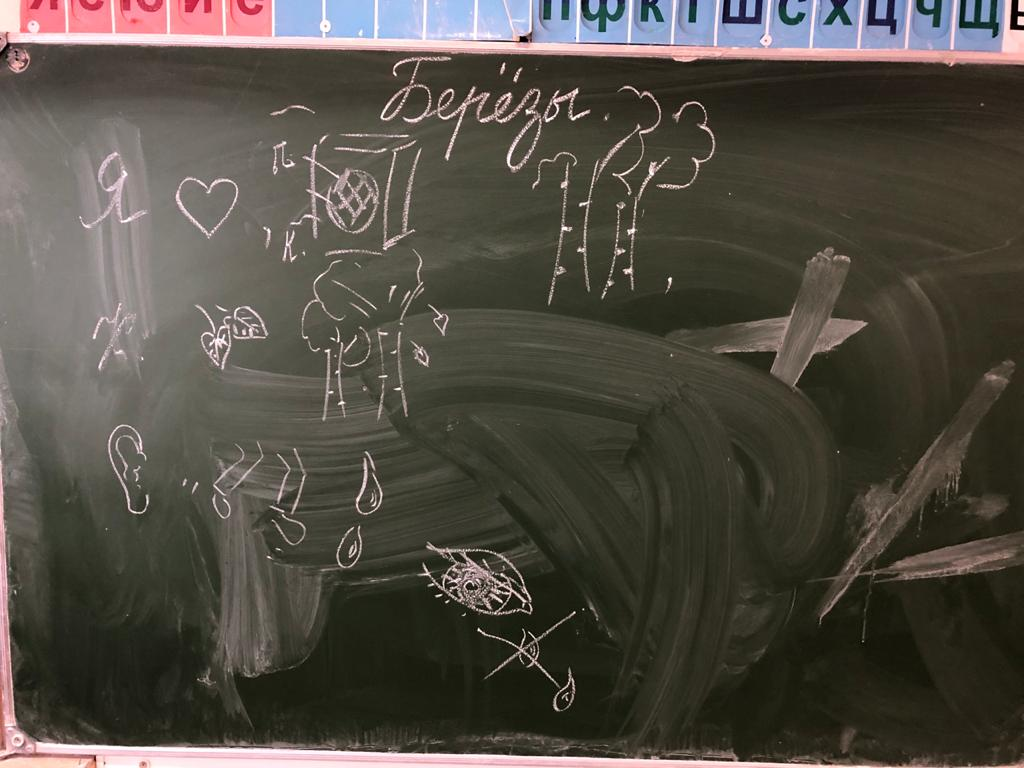 Я Ё Ю И Е П Ф К Т Ш С Х Ц Ч Щ
Берёзы.
Я
П.
К.